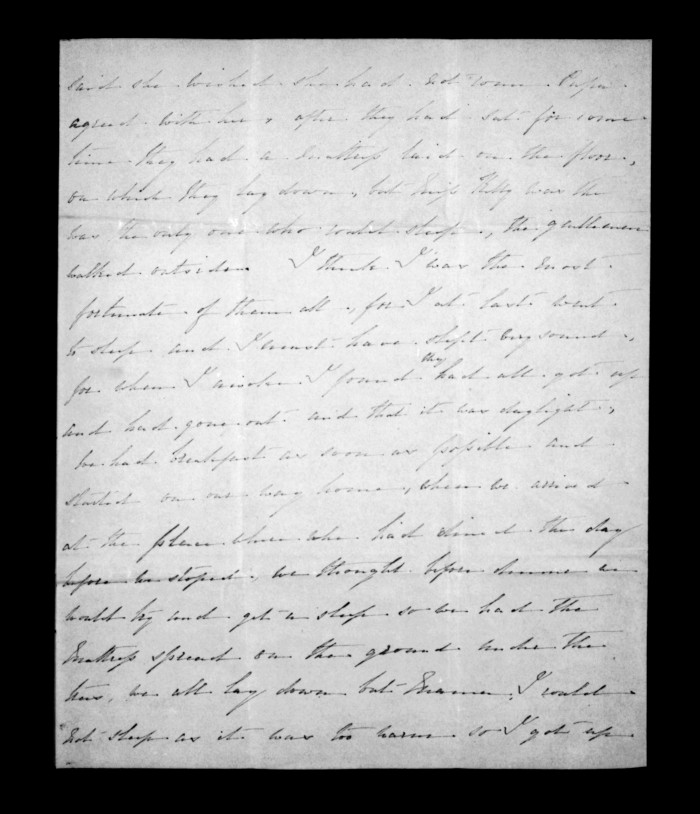 said she wished she had not come. Papa
agreed with her & after they had sat for some
time they had a mattrass laid on the floor,
on which they lay down, but Miss was the
was the only one who could sleep, the gentlemen
walked outside. I think I was the most
fortunate of them all, for I at last went
to sleep and I must have slept very sound,
for when I awoke I found they had all got up
and had gone out and that it was daylight,
we had breakfast as soon as possible and
started on our way home, when we arrived
at the place where we had dined the day
before we stoped, we thought before dinner we
would try and get a sleep so we had the
mattrass spread on the ground under the
trees, we all lay down but Mamma, I could
not sleep as it was too warm so I got up